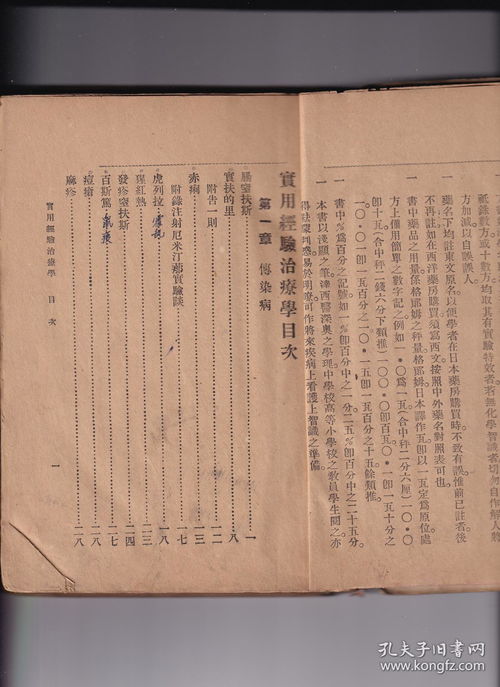 祇錄數方或十數方均取其有實驗特效者若無化學智識者切勿自作解人將
方加減以自誤誤人。
一 藥名下均註東文原名以便學者在日本藥房購買時不致有誤惟前已註者後
不再註如在西洋藥房購買須寫西文按照中外藥名對照表可也。
一 書中藥品之用量係格郎姆之秤量格郎姆日本譯作瓦卽以一瓦定爲原位處
方上僅用簡單之數字記之例如一・〇爲一瓦(合中秤二分六厘)一〇・〇
卽十瓦(合中秤二錢六分下類推)一〇〇・〇卽百瓦〇・一卽一瓦十分之
一〇・〇一卽一瓦百分之一〇・一五卽一瓦百分之十五餘類推。
一 書中%爲百分之記號如一%卽百分中之一分二五%卽百分中之二十五分。
一 本書以淺顯之筆達西醫深奧之學理中學校高等小學校之敎員學生閱之亦
得袪蒙判惑易於明瞭可作將來疾病上看護上智識之準備。
實用經驗治療學目次
第一章 傳染病
腸窒扶斯……一
實扶的里……八
附告一則……一二
赤痢……一三
附錄注射厄米汀 實驗談……一七
虎列拉 霍亂……一八
猩紅熱……二三
發疹窒扶斯……二四
百斯篤 鼠疫……二七
痘瘡……二八
麻疹……二八
實用經驗治療學 目次
一
孔夫子旧书网
www.kongfz.com